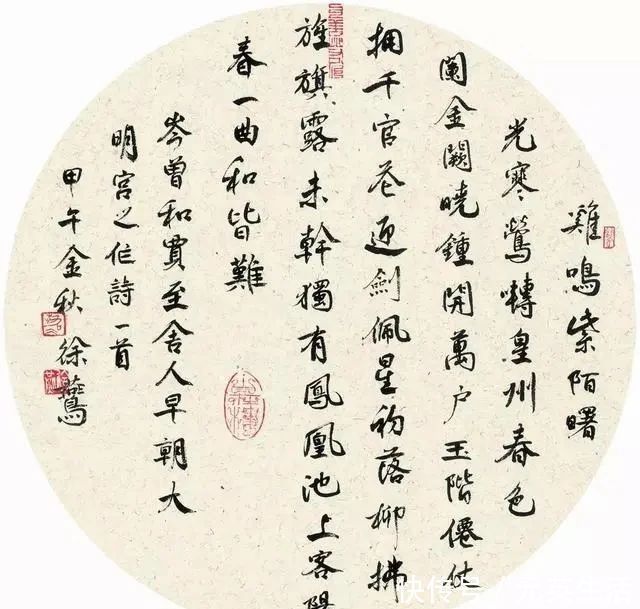 雞鳴紫陌曙
光寒鶯轉皇州春色
闌金闕曉鍾開萬户玉階僊仗
拥千官花迎劍佩星初落柳拂
旌旗露未幹獨有鳳凰池上客陽
春一曲和皆難
岑曾和賈至舍人早朝大
明宮之作詩一首
甲午金秋徐
快传号